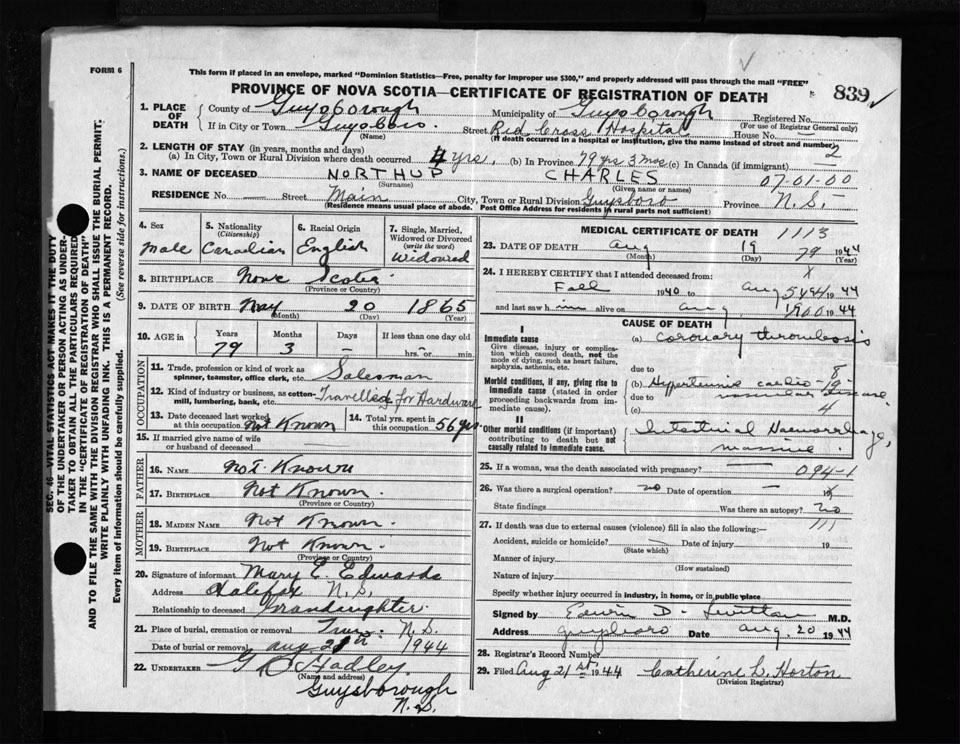 FORM 6
This form if placed in an envelope, marked "Dominion Statistics—Free, penalty for improper use $300," and properly addressed will pass through the mail "FREE"
PROVINCE OF NOVA SCOTIA—CERTIFICATE OF REGISTRATION OF DEATH
839
1. PLACE OF DEATH County of Guysborough Municipality of Guysborough Registered No.
(For use of Registrar General only)
If in City or Town Guysboro. Street Red Cross Hospital House No.
(Name) (If death occurred in a hospital or institution, give the name instead of street and number)
2
2. LENGTH OF STAY (in years, months and days)
(a) In City, Town or Rural Division where death occurred 4 yrs. (b) In Province 79 yrs 3 mos (c) In Canada (if immigrant)
3. NAME OF DECEASED NORTHUP CHARLES 07-01-00
(Surname) (Given name or names)
RESIDENCE No. — Street Main City, Town or Rural Division Guysboro Province N.S.
(Residence means usual place of abode. Post Office Address for residents in rural parts not sufficient)
4. Sex
Male
5. Nationality (Citizenship)
Canadian
6. Racial Origin
English
7. Single, Married, Widowed or Divorced (write the word)
Widowed
8. BIRTHPLACE Nova Scotia
(Province or Country)
9. DATE OF BIRTH May 20 1865
(Month) (Day) (Year)
10. AGE in Years Months Days If less than one day
79 3 — hrs. or min.
OCCUPATION
11. Trade, profession or kind of work as spinner, teamster, office clerk, etc. Salesman
12. Kind of industry or business, as cotton-mill, lumbering, bank, etc. Travelling for Hardware
13. Date deceased last worked at this occupation Not Known
14. Total yrs. spent in this occupation 56 yrs.
15. If married give name of wife or husband of deceased
FATHER
16. NAME Not Known
17. BIRTHPLACE Not Known.
(Province or Country)
MOTHER
18. MAIDEN NAME Not Known.
19. BIRTHPLACE Not Known.
(Province or Country)
20. Signature of informant Mary E. Edwards
Address Halifax N.S.
Relationship to deceased Grandaughter.
21. Place of burial, cremation or removal Truro N.S.
Date of burial or removal Aug 21st 1944
22. UNDERTAKER Hadley
(Name and address)
Guysborough
N.S.
MEDICAL CERTIFICATE OF DEATH 1113
23. DATE OF DEATH Aug 19 79 1944
(Month) (Day) (Year)
24. I HEREBY CERTIFY that I attended deceased from:
Fall 1940 to Aug 1944
and last saw him alive on Aug 1944
CAUSE OF DEATH
I
Immediate cause
Give disease, injury or complication which caused death, not the mode of dying, such as heart failure, asphyxia, asthenia, etc.
(a) Coronary thrombosis
due to 8
Morbid conditions, if any, giving rise to immediate cause (stated in order proceeding backwards from immediate cause).
(b) Hypertensive cardio-
due to vascular disease.
(c) 4
II
Other morbid conditions (if important) contributing to death but not causally related to immediate cause.
Intestinal Haemorrhage,
massive.
25. If a woman, was the death associated with pregnancy? — 094-1
26. Was there a surgical operation? no Date of operation — 19
State findings Was there an autopsy? no
27. If death was due to external causes (violence) fill in also the following:—
Accident, suicide or homicide? Date of injury 19
(State which)
Manner of injury
(How sustained)
Nature of injury
Specify whether injury occurred in industry, in home, or in public place
Signed by Edwin D. M.D.
Address Guysboro Date Aug. 20 1944
28. Registrar's Record Number
29. Filed Aug 21st 1944 Catherine L. Horton
(Division Registrar)
SEC. 46—VITAL STATISTICS ACT MAKES IT THE DUTY OF THE UNDERTAKER OR PERSON ACTING AS UNDERTAKER TO OBTAIN ALL THE PARTICULARS REQUIRED IN THE "CERTIFICATE OF REGISTRATION OF DEATH" AND TO FILE THE SAME WITH THE DIVISION REGISTRAR WHO SHALL ISSUE THE BURIAL PERMIT.
WRITE PLAINLY WITH UNFADING INK. THIS IS A PERMANENT RECORD.
Every item of information should be carefully supplied. (See reverse side for instructions.)